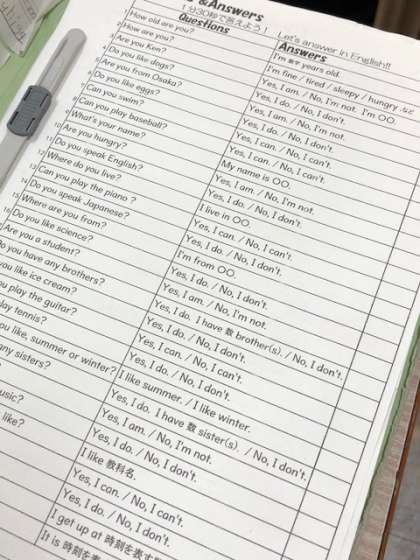 &Answers
1分30秒で答えよう! Let's answer in English!!
Questions Answers
1 How old are you? I'm 数字 years old.
2 How are you? I'm fine / tired / sleepy / hungry など
3 Are you Ken? Yes, I am. / No, I'm not. I'm OO.
4 Do you like dogs? Yes, I do. / No, I don't.
5 Are you from Osaka? Yes, I am. / No, I'm not.
6 Do you like eggs? Yes, I do. / No, I don't.
7 Can you swim? Yes, I can. / No, I can't.
8 Can you play baseball? Yes, I can. / No, I can't.
9 What's your name? My name is OO.
10 Are you hungry? Yes, I am. / No, I'm not.
11 Do you speak English? Yes, I do. / No, I don't.
12 Where do you live? I live in OO.
13 Can you play the piano ? Yes, I can. / No, I can't.
14 Do you speak Japanese? Yes, I do. / No, I don't.
15 Where are you from? I'm from OO.
16 Do you like science? Yes, I do. / No, I don't.
Are you a student? Yes, I am. / No, I'm not.
Do you have any brothers? Yes, I do. I have 数 brother(s). / No, I don't.
you like ice cream? Yes, I do. / No, I don't.
you play the guitar? Yes, I can. / No, I can't.
play tennis? Yes, I do. / No, I don't.
you like, summer or winter? I like summer. / I like winter.
any sisters? Yes, I do. I have 数 sister(s). / No, I don't.
Yes, I am. / No, I'm not.
music? Yes, I do. / No, I don't.
like? I like 教科名.
Yes, I can. / No, I can't.
Yes, I do. / No, I don't.
I get up at 時刻を表す
It is 時刻を